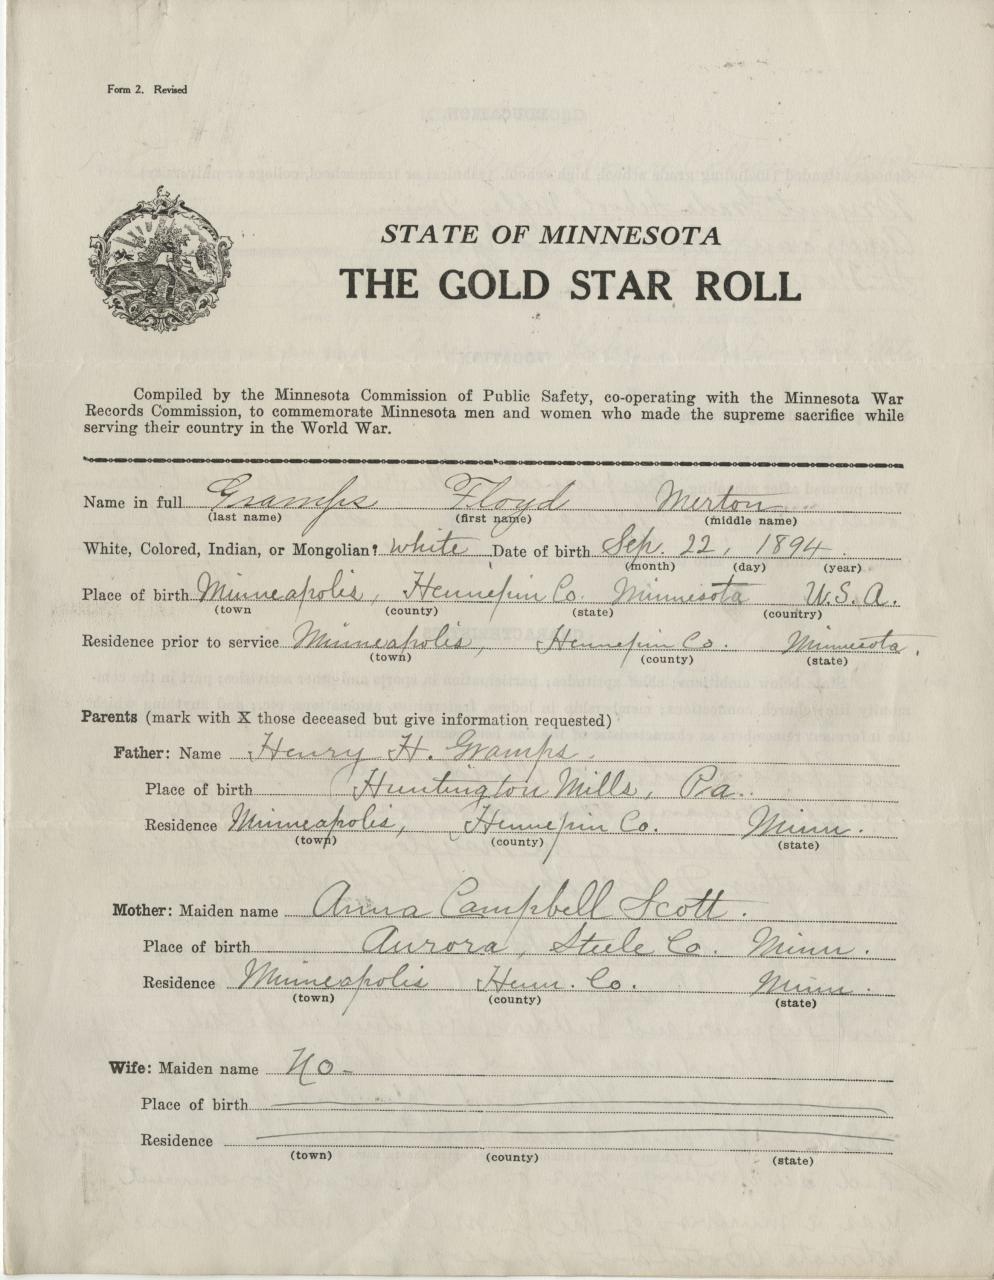 Form 2. Revised
STATE OF MINNESOTA
THE GOLD STAR ROLL
Compiled by the Minnesota Commission of Public Safety, co-operating with the Minnesota War
Records Commission, to commemorate Minnesota men and women who made the supreme sacrifice while
serving their country in the World War.
Name in full Gramps Floyd Merton
(last name) (first name) (middle name)
White, Colored, Indian, or Mongolian? White Date of birth Sep. 22, 1894.
(month) (day) (year)
Place of birth Minneapolis, Hennepin Co. Minnesota U.S.A.
(town (county) (state) (country)
Residence prior to service Minneapolis, Hennepin Co. Minnesota.
(town) (county) (state)
Parents (mark with X those deceased but give information requested)
Father: Name Henry H. Gramps.
Place of birth Huntington Mills, Pa.
Residence Minneapolis, Hennepin Co. Minn.
(town) (county) (state)
Mother: Maiden name Anna Campbell Scott.
Place of birth Aurora, Steele Co. Minn.
Residence Minneapolis Henn. Co. Minn.
(town) (county) (state)
Wife: Maiden name No-
Place of birth
Residence
(town) (county) (state)